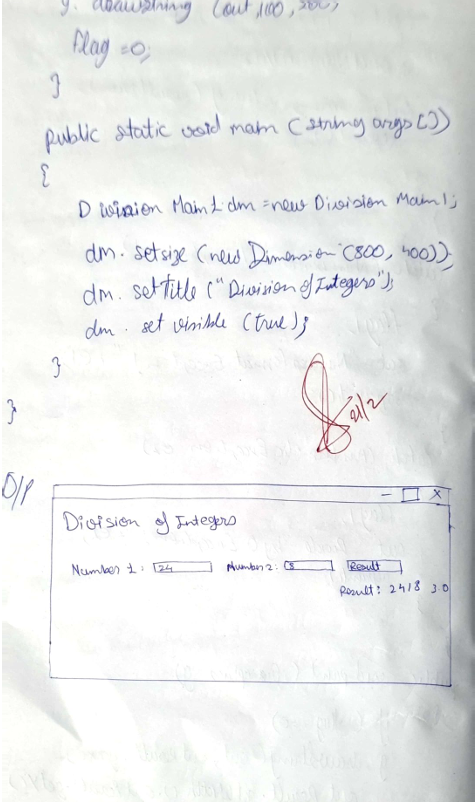 g. drawstring (out, 100, 200)
flag = 0;
}
public static void main (string args [])
{
Division Main1 dm = new Division Main1;
dm. setsize (new Dimension (800, 400));
dm. set Title ("Division of Integers");
dm. set visible (true);
}
}
21/2
O/P
- □ X
Division of Integers
Number 1: 24 Number 2: 8 Result
Result: 2418 3.0